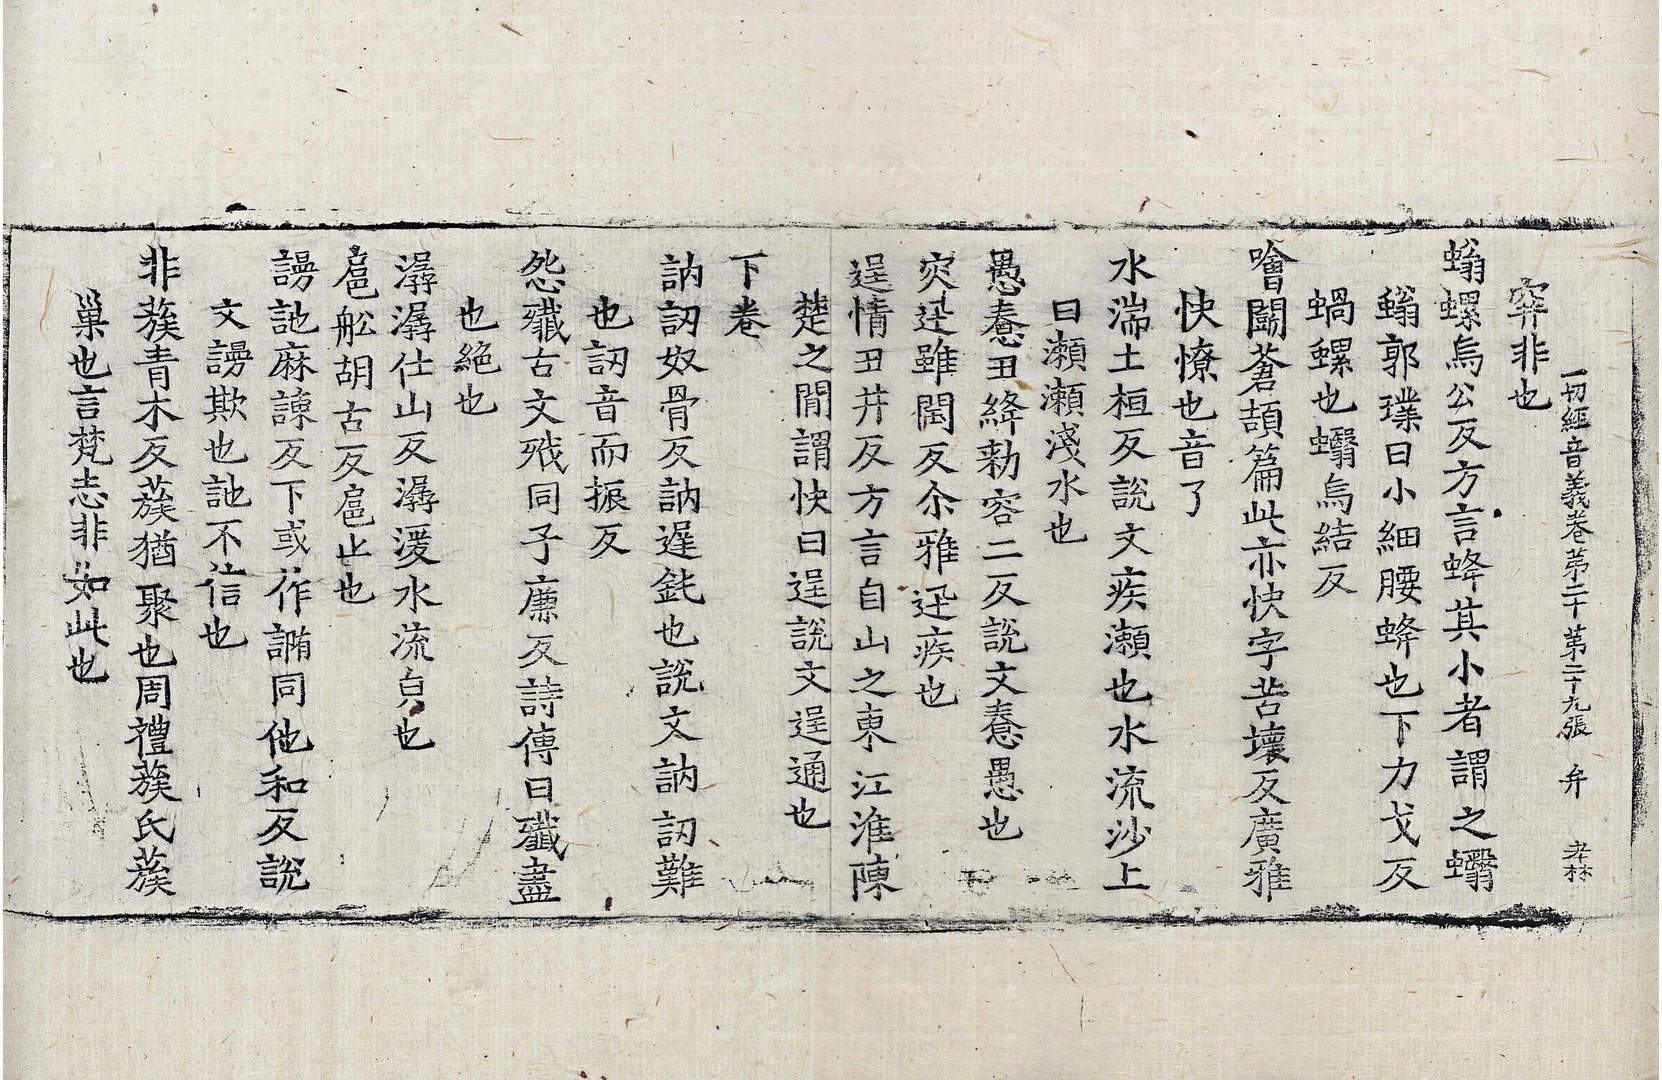 一切經音義卷苐二十 苐二十九張 弁 孝林
穽非也
螉螺烏公反方言蜂其小者謂之蠮
螉郭璞曰小細腰蜂也下力戈反
蝸螺也蠮烏結反
噲鬬蒼頡篇此亦快字苦壞反廣雅
快憭也音了
水湍土桓反說文疾瀬也水流沙上
曰瀬瀬淺水也
愚惷丑絳勑容二反說文惷愚也
突迅雖閏反尒雅迅疾也
逞情丑井反方言自山之東江淮陳
楚之閒謂快曰逞說文逞通也
下卷
訥訒奴骨反訥遅鈍也說文訥訒難
也訒音而振反
怨殲古文㦰同子廉反詩傳曰殲盡
也絕也
潺潺仕山反潺湲水流皃也
扈舩胡古反扈止也
謾訑麻諫反下或作䛢同他和反說
文謾欺也訑不信也
非蔟青木反蔟猶聚也周禮蔟氏蔟
巢也言梵志非如此也